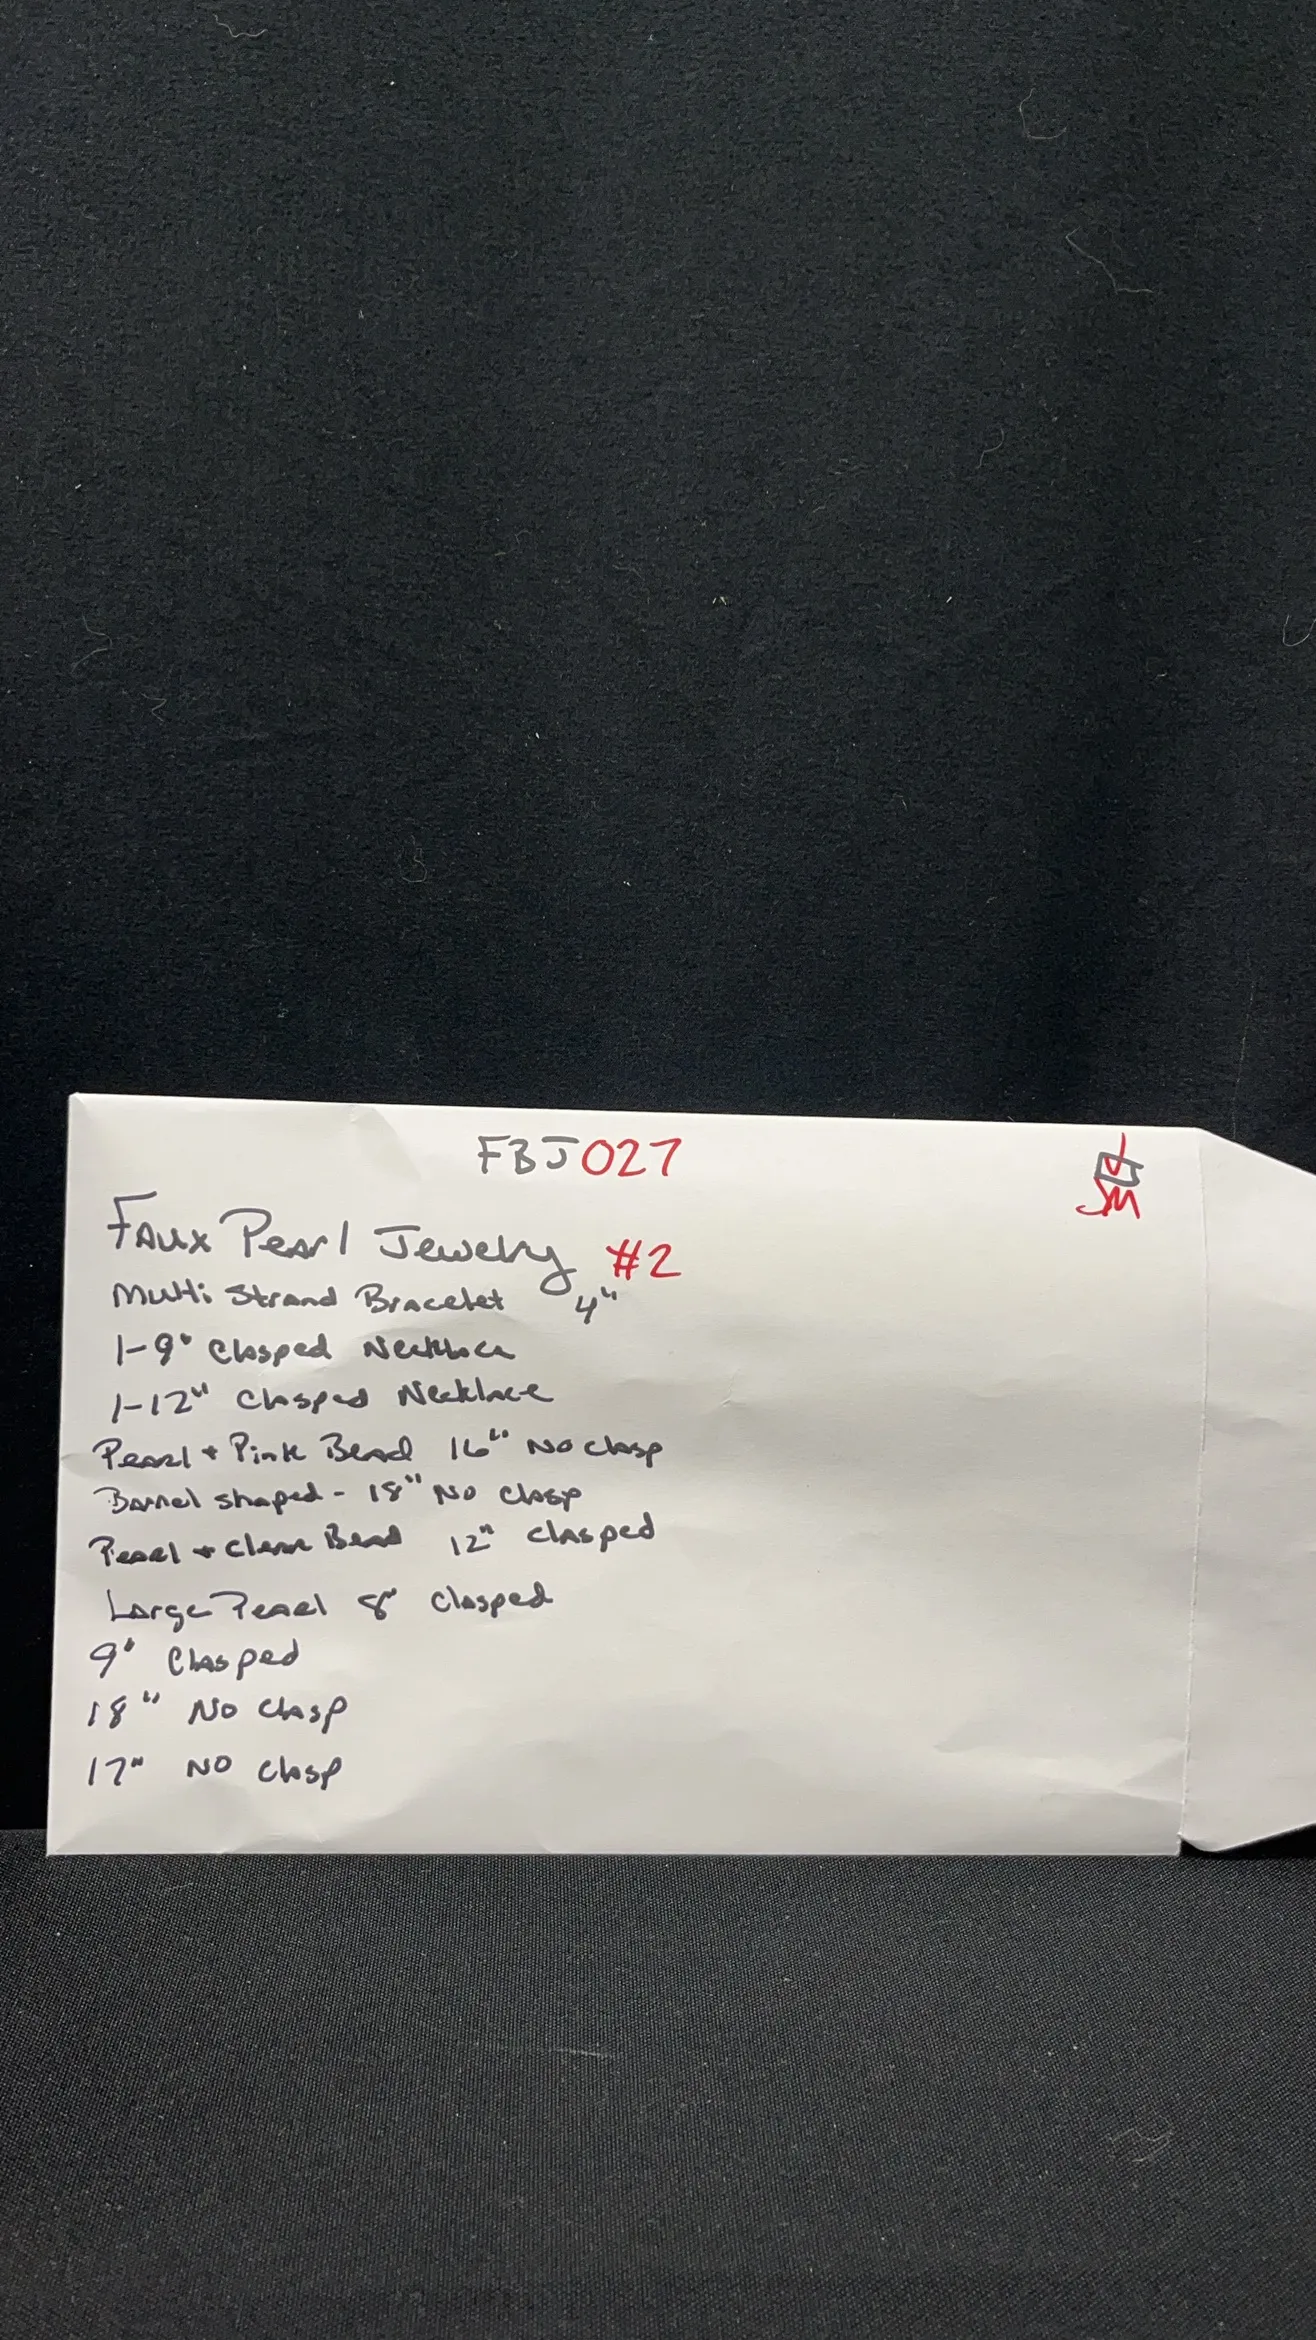 FBJ027
SM
Faux Pearl Jewelry #2
Multi Strand Bracelet 4"
1-9" Clasped Necklace
1-12" Clasped Necklace
Pearl + Pink Bead 16" No clasp
Barrel shaped - 18" No clasp
Pearl + Clear Bead 12" Clasped
Large Pearl 8" Clasped
9" Clasped
18" No Clasp
17" No Clasp